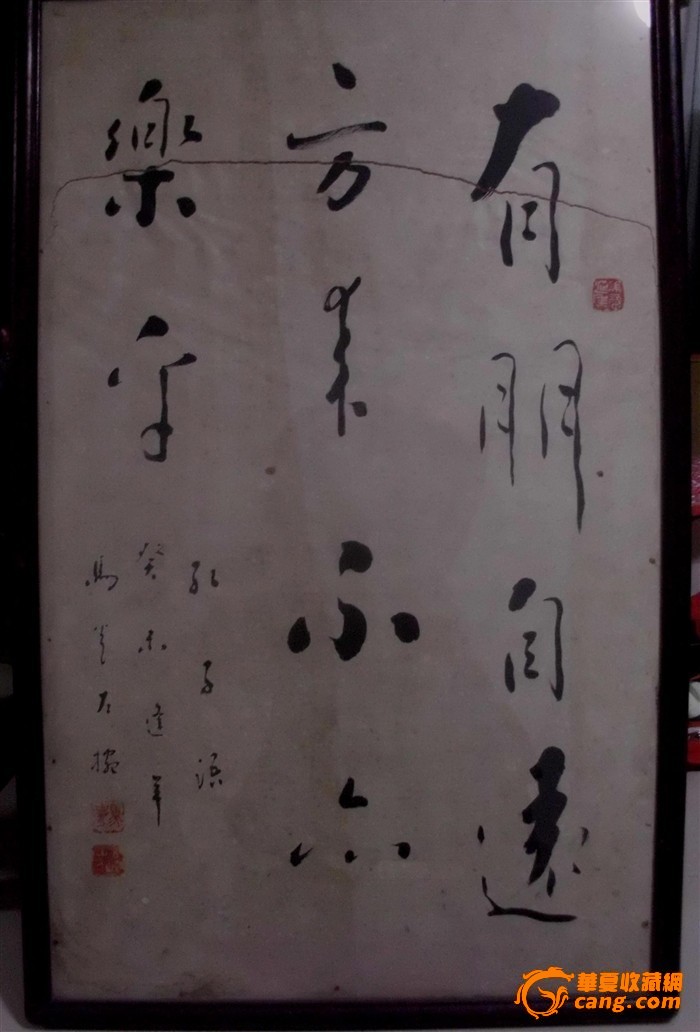 有朋自遠
方來不亦
樂乎
孔子語
癸未逢年
馬
華夏收藏網
cang.com